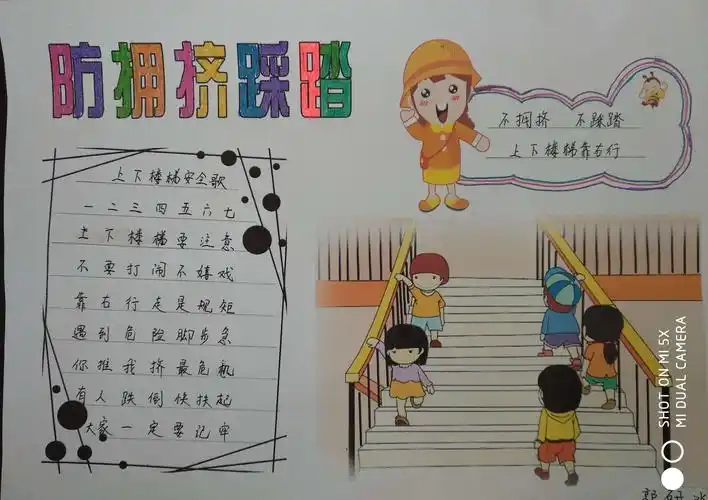 防拥挤踩踏
不拥挤 不踩踏
上下楼梯靠右行
上下楼梯安全歌
一二三四五六七
上下楼梯要注意
不要打闹不嬉戏
靠右行走是规矩
遇到危险脚步急
你推我挤最危机
有人跌倒快扶起
大家一定要记牢
SHOT ON MI 5X
MI DUAL CAMERA